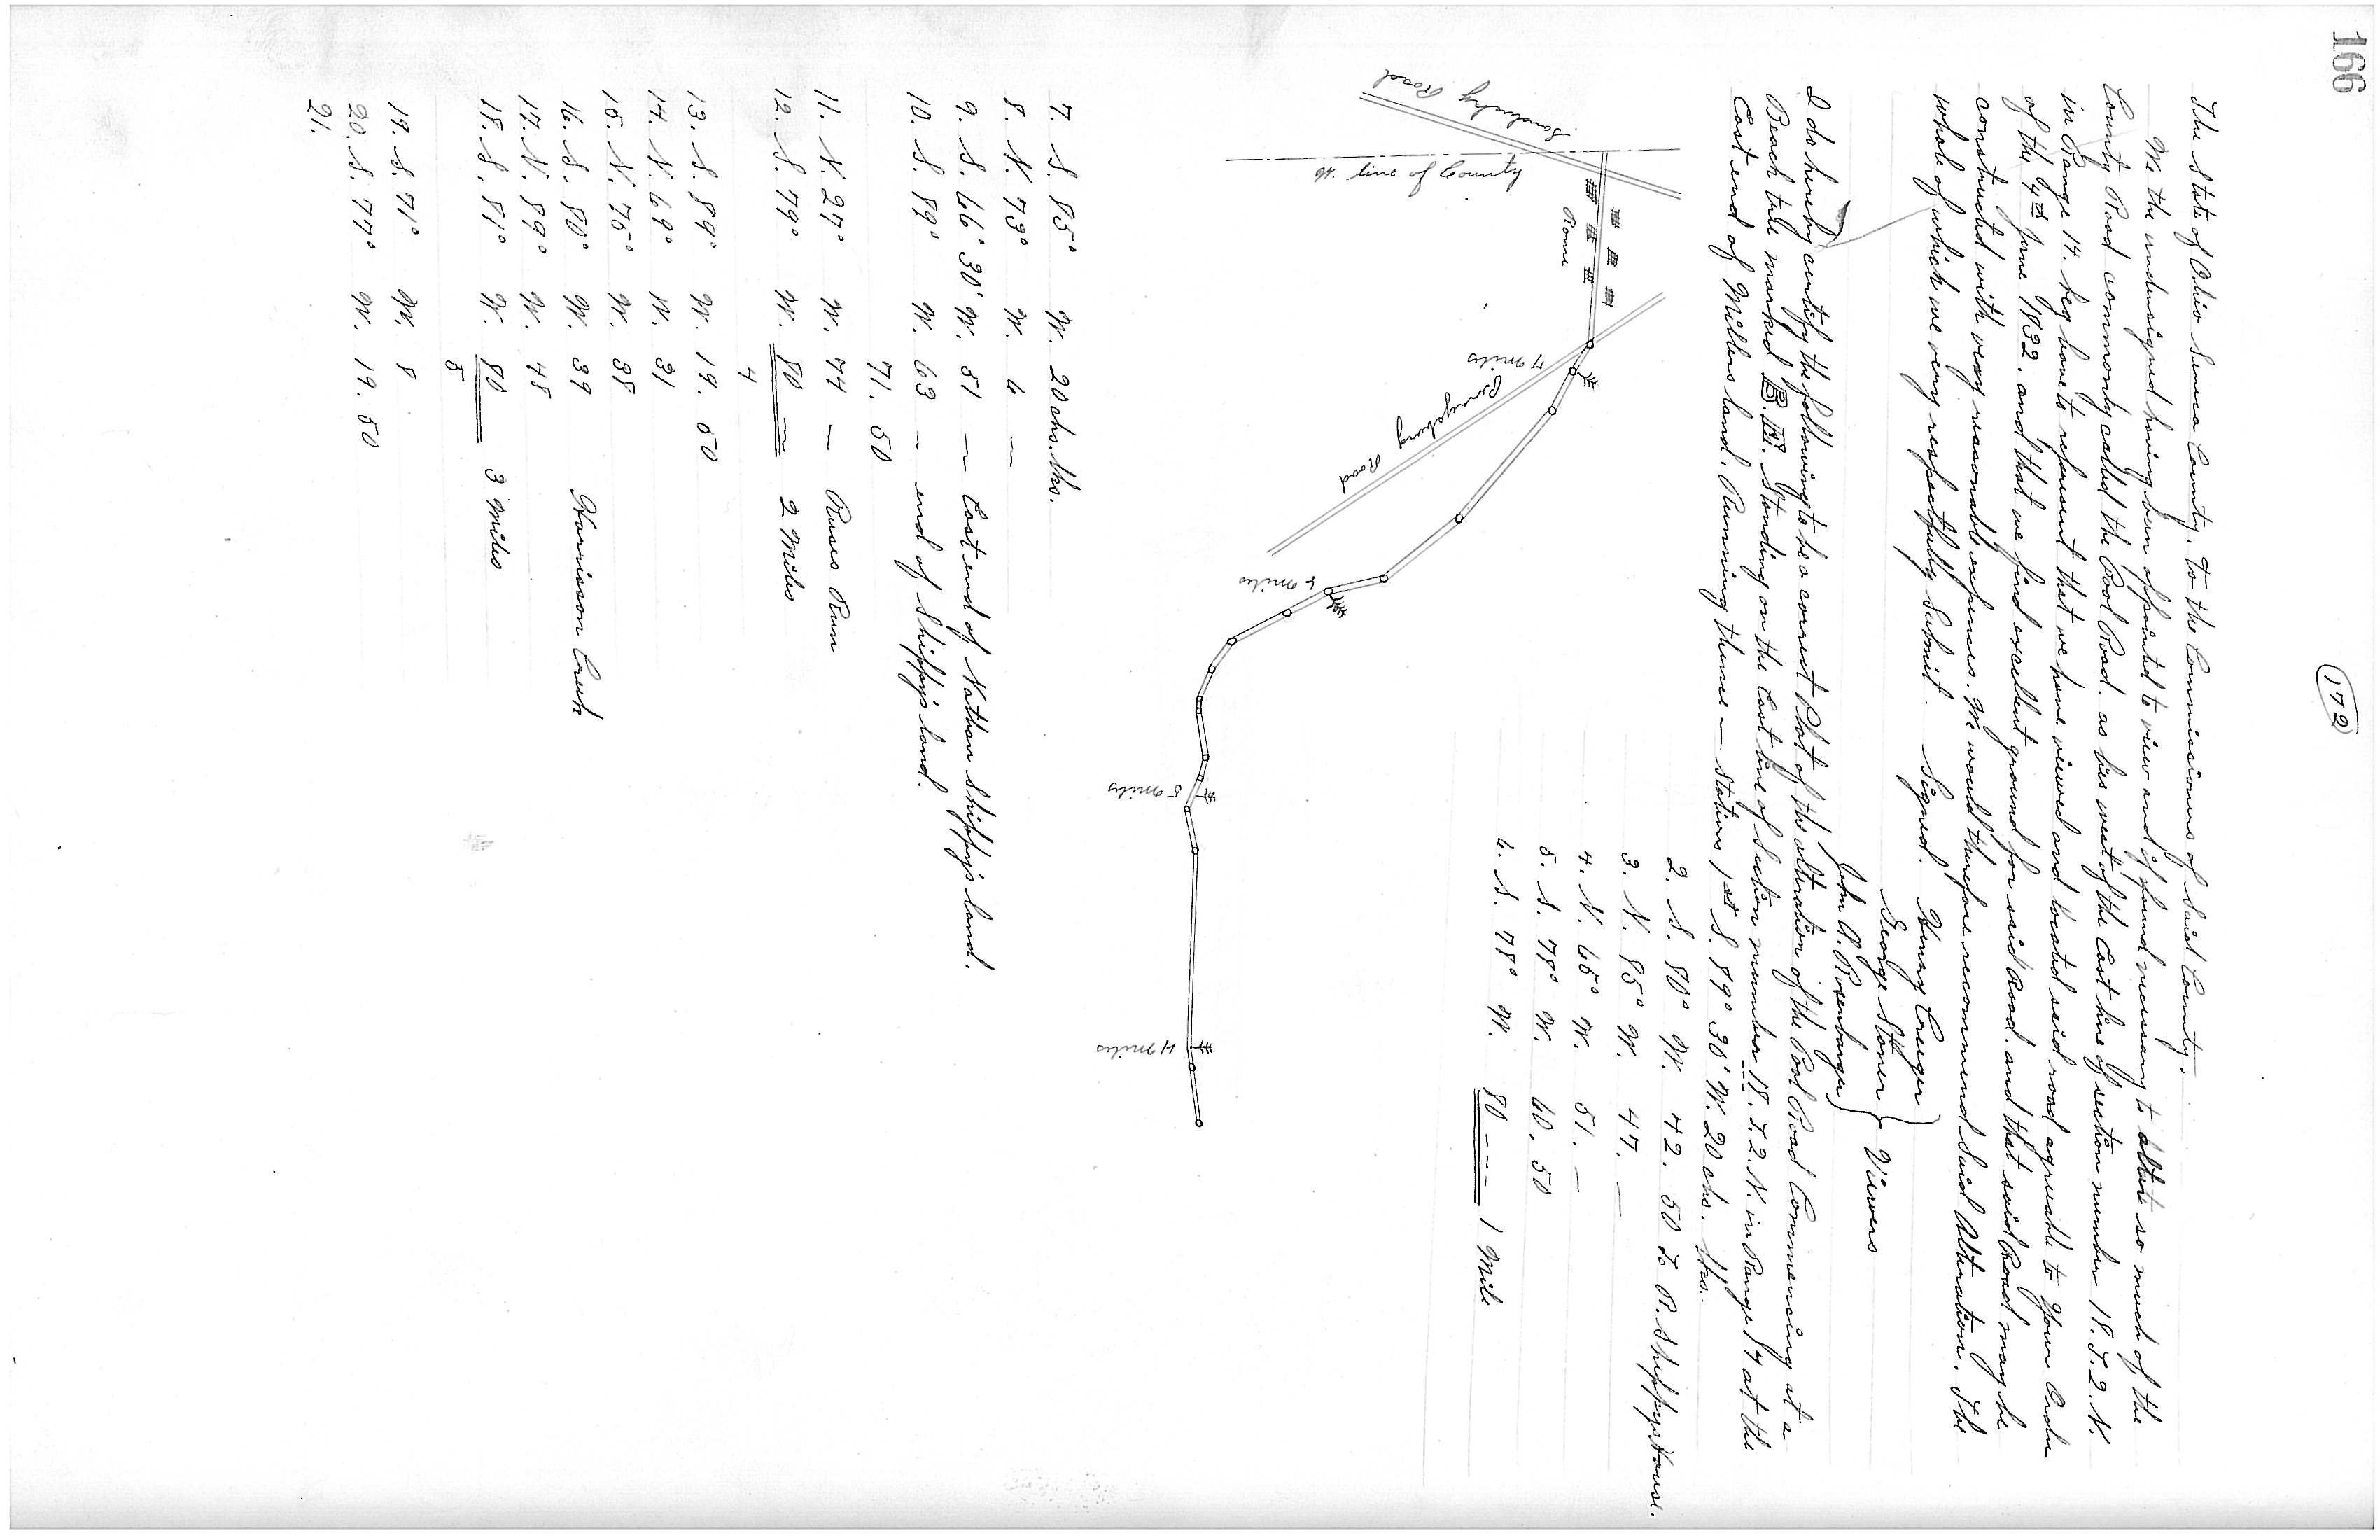 166
172
The State of Ohio Seneca County, To the Commissioners of Said County.
We the undersigned having been appointed to view and if found necessary to alter so much of the
County Road commonly called the Pool Road. as lies west of the East line of section number 18. T. 2. N.
in Range 14. beg leave to represent that we have viewed and located said road agreeable to your Order
of the 4th June 1832. and that we find excellent ground for said Road. and that said Road may be
constructed with very reasonable expenses. We would therefore recommend Said Alteration. The
whole of which we very respectfully Submit. Signed. Henry Creeger
George Stoner } Viewers
John A. Rosenbarger
I do hereby certify the following to be a correct Plat of the alteration of the Pool Road Commencing at a
Beach tree marked B. R. Standing on the East line of Section number 18. T. 2. N. in Range 14 at the
East end of Millers land. Running thence — Stations 1st S. 89° 30' W. 20 chs. lks.
2. S. 80° W. 42. 50 To R. Shippys House.
3. N. 85° W. 47. —
4. N. 65° W. 51. —
5. S. 78° W. 60. 50
6. S. 78° W. 80 - - - 1 Mile
Sandusky Road
Line of County
Rome
7 miles
Road
6 miles
5 miles
4 miles
7. S. 85° W. 20 chs. lks.
8. N. 73° W. 6 —
9. S. 66° 30' W. 51 — East end of Nathan Shippy's land.
10. S. 89° W. 63 — end of Shippy's land.
71. 50
11. N. 27° W. 74 — Ruses Run
12. S. 79° W. 80 — 2 Miles
4
13. S. 89° W. 19. 50
14. N. 69° W. 31
15. N. 75° W. 38
16. S. 80° W. 39 Harrison Creek
17. N. 89° W. 48
18. S. 81° W. 80 3 Miles
5
19. S. 71° W. 8
20. S. 77° W. 19. 50
21.